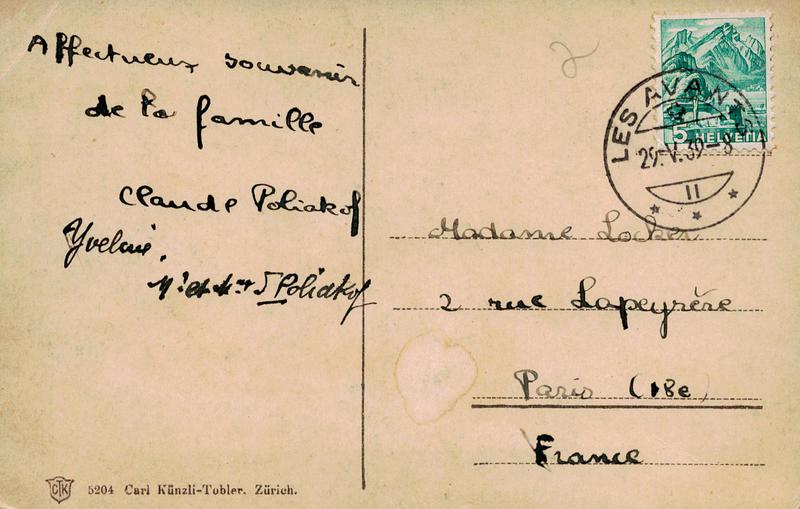 Affectueux souvenir
de la famille
Claude Poliakof
M. et Mme S Poliakof
CTK
5204 Carl Künzli-Tobler. Zürich.
5 HELVETIA
LES AVANTS
29.V.39-8
II
Madame Locker
2 rue Lapeyrère
Paris (18e)
France